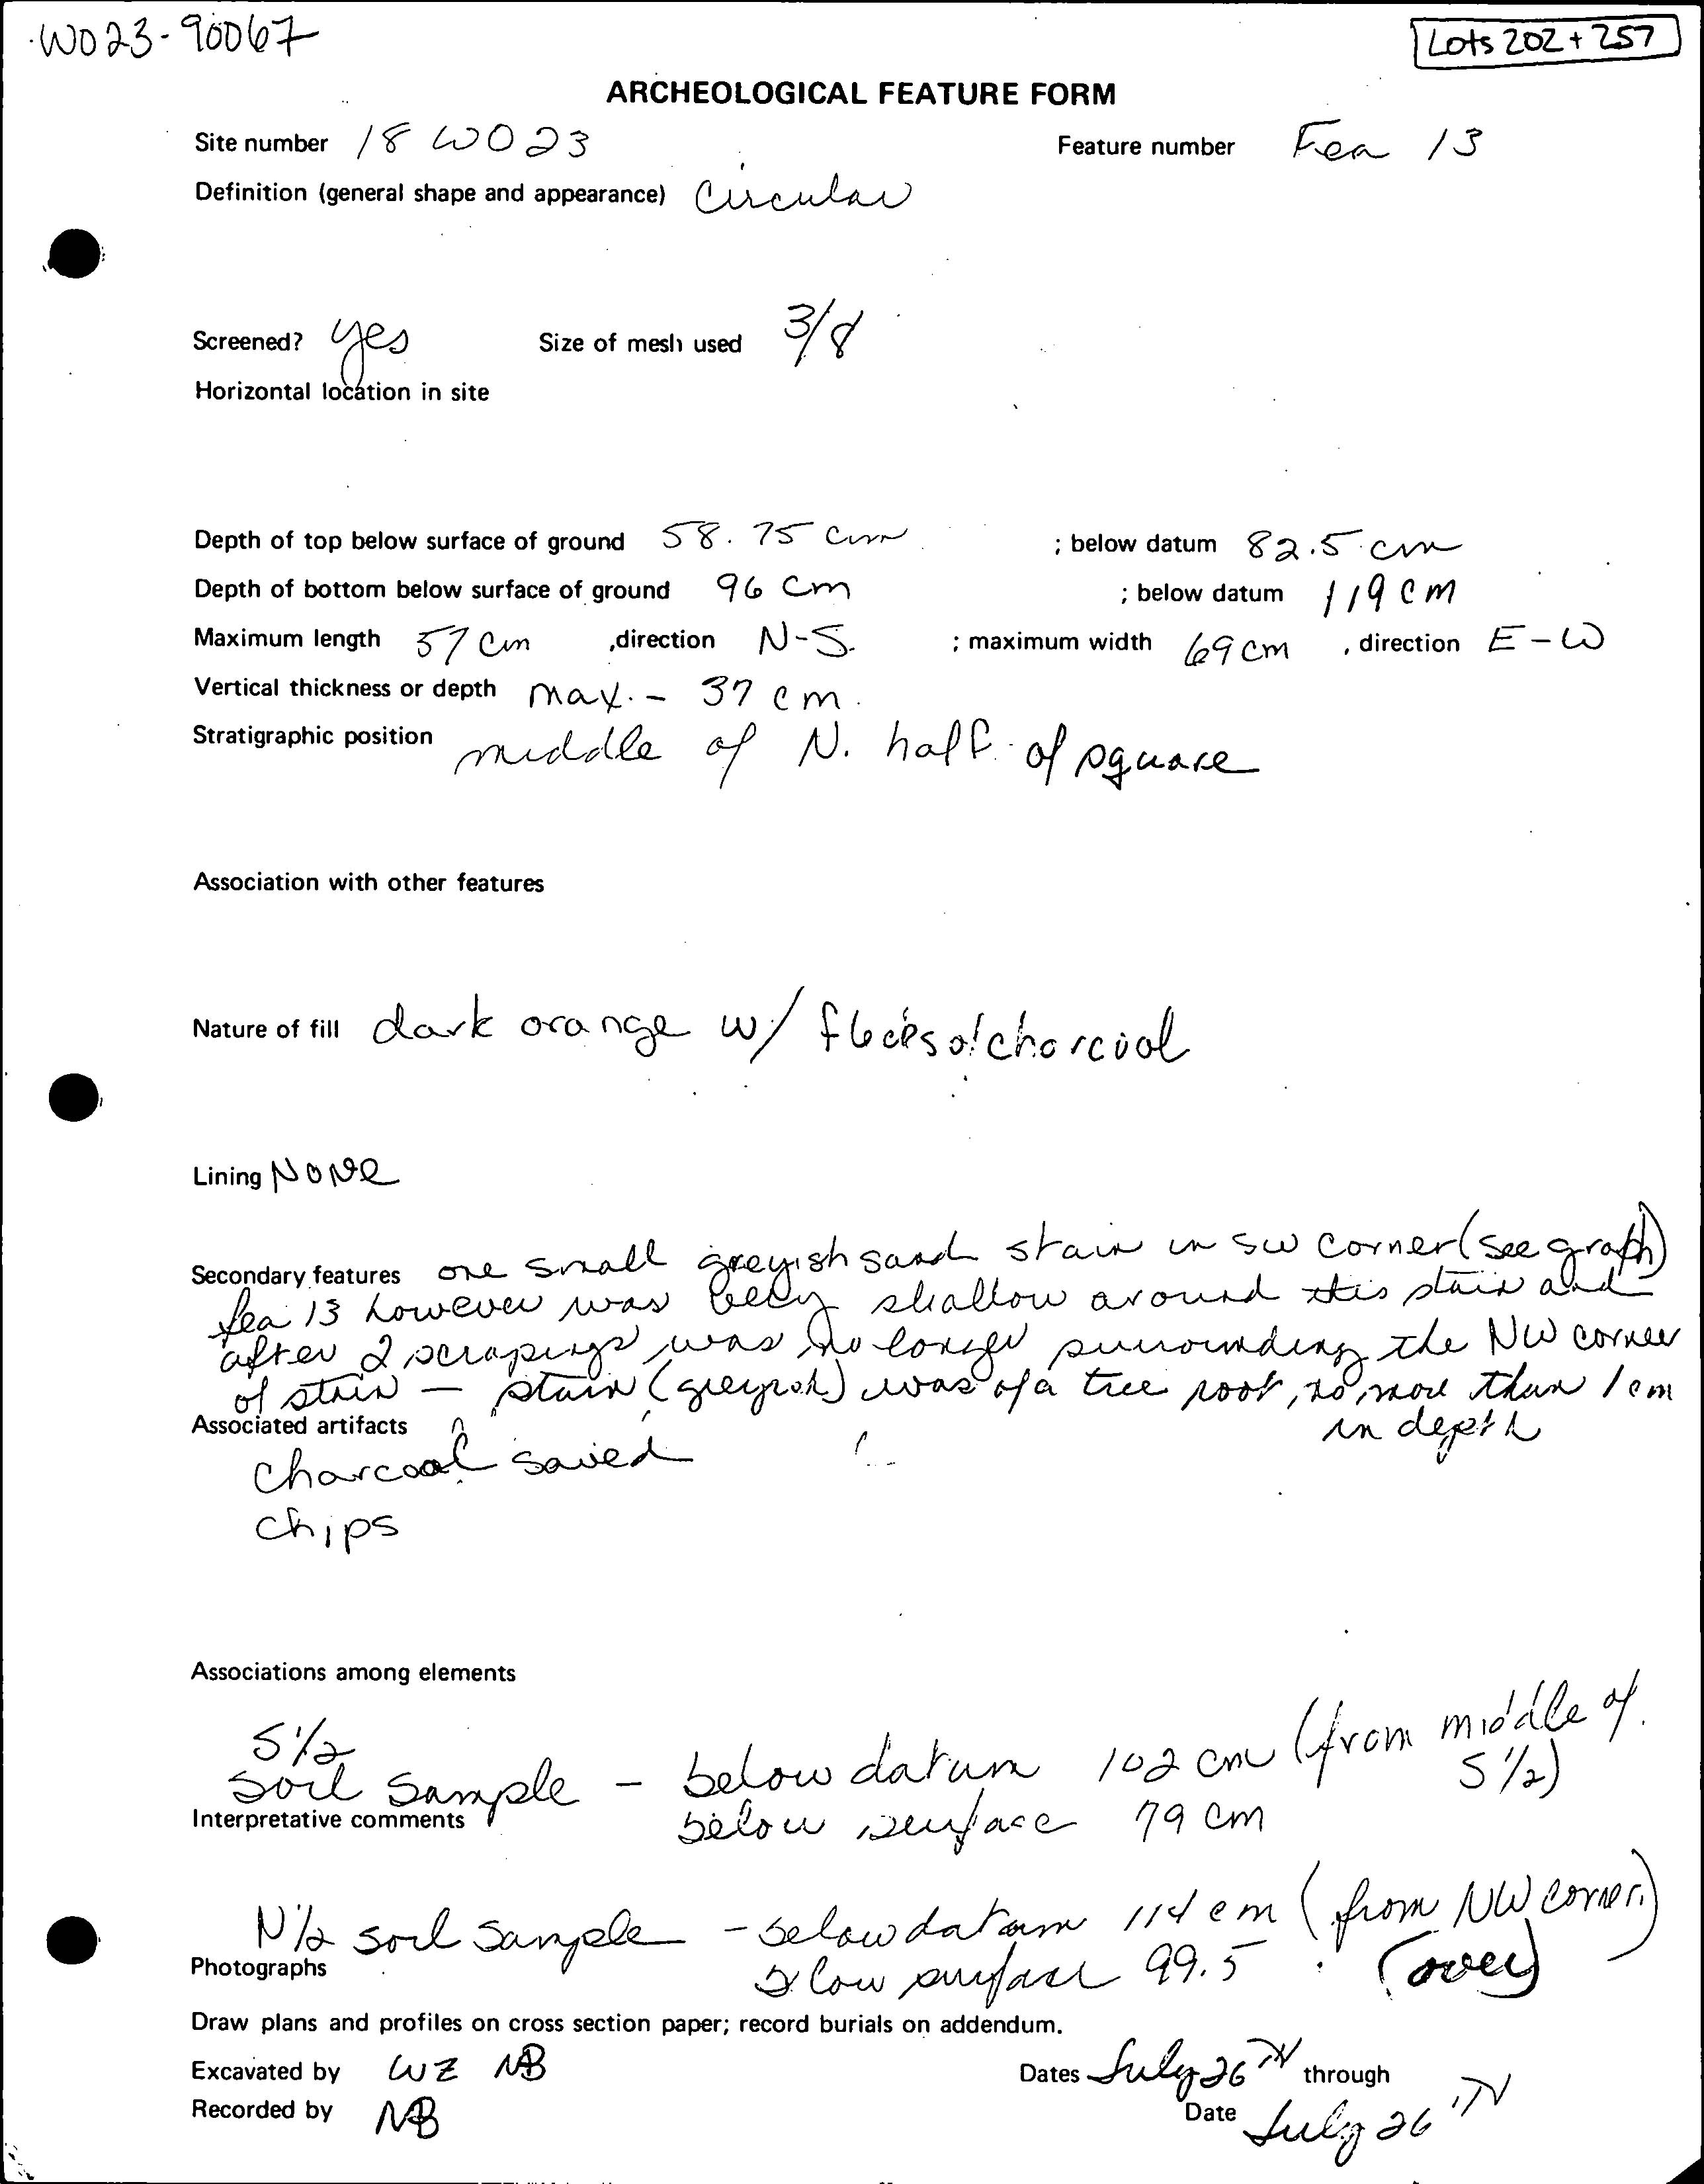 W023-90067
Lots 202 + 257
ARCHEOLOGICAL FEATURE FORM
Site number 18 WO 23 Feature number Fea 13
Definition (general shape and appearance) Circular
Screened? yes Size of mesh used 3/8
Horizontal location in site
Depth of top below surface of ground 58.75 cm ; below datum 82.5 cm
Depth of bottom below surface of ground 96 cm ; below datum 119 cm
Maximum length 57 cm ,direction N-S. ; maximum width 69 cm , direction E-W
Vertical thickness or depth max. - 37 cm.
Stratigraphic position middle of N. half of square
Association with other features
Nature of fill dark orange w/ flecks of charcoal
Lining None
Secondary features one small greyish sand stain in SW corner (see graph)
fea 13 however was very shallow around this stain and
after 2 scrapings was no longer surrounding the NW corner
of stain — stain (greyish) was of a tree root, no more than 1 cm
in depth
Associated artifacts
charcoal saved
chips
Associations among elements
S 1/2
soil sample - below datum 102 cm (from middle of
S 1/2)
Interpretative comments
below surface 79 cm
N 1/2 soil sample - below datum 114 cm (from NW corner.)
Photographs
below surface 99.5 . (over)
Draw plans and profiles on cross section paper; record burials on addendum.
Excavated by WZ NB Dates July 26TH through
Recorded by NB Date July 26TH